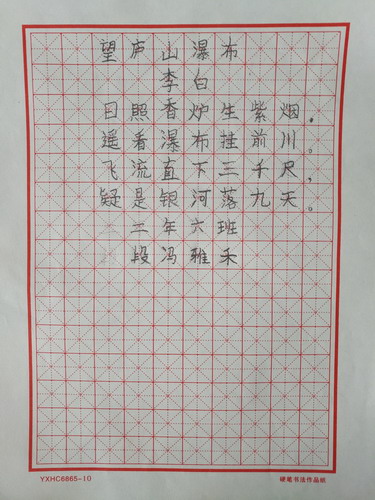 望庐山瀑布
李白
日照香炉生紫烟。
遥看瀑布挂前川。
飞流直下三千尺，
疑是银河落九天。
二年六班
段冯雅禾
YXHC6865-10
硬笔书法作品纸